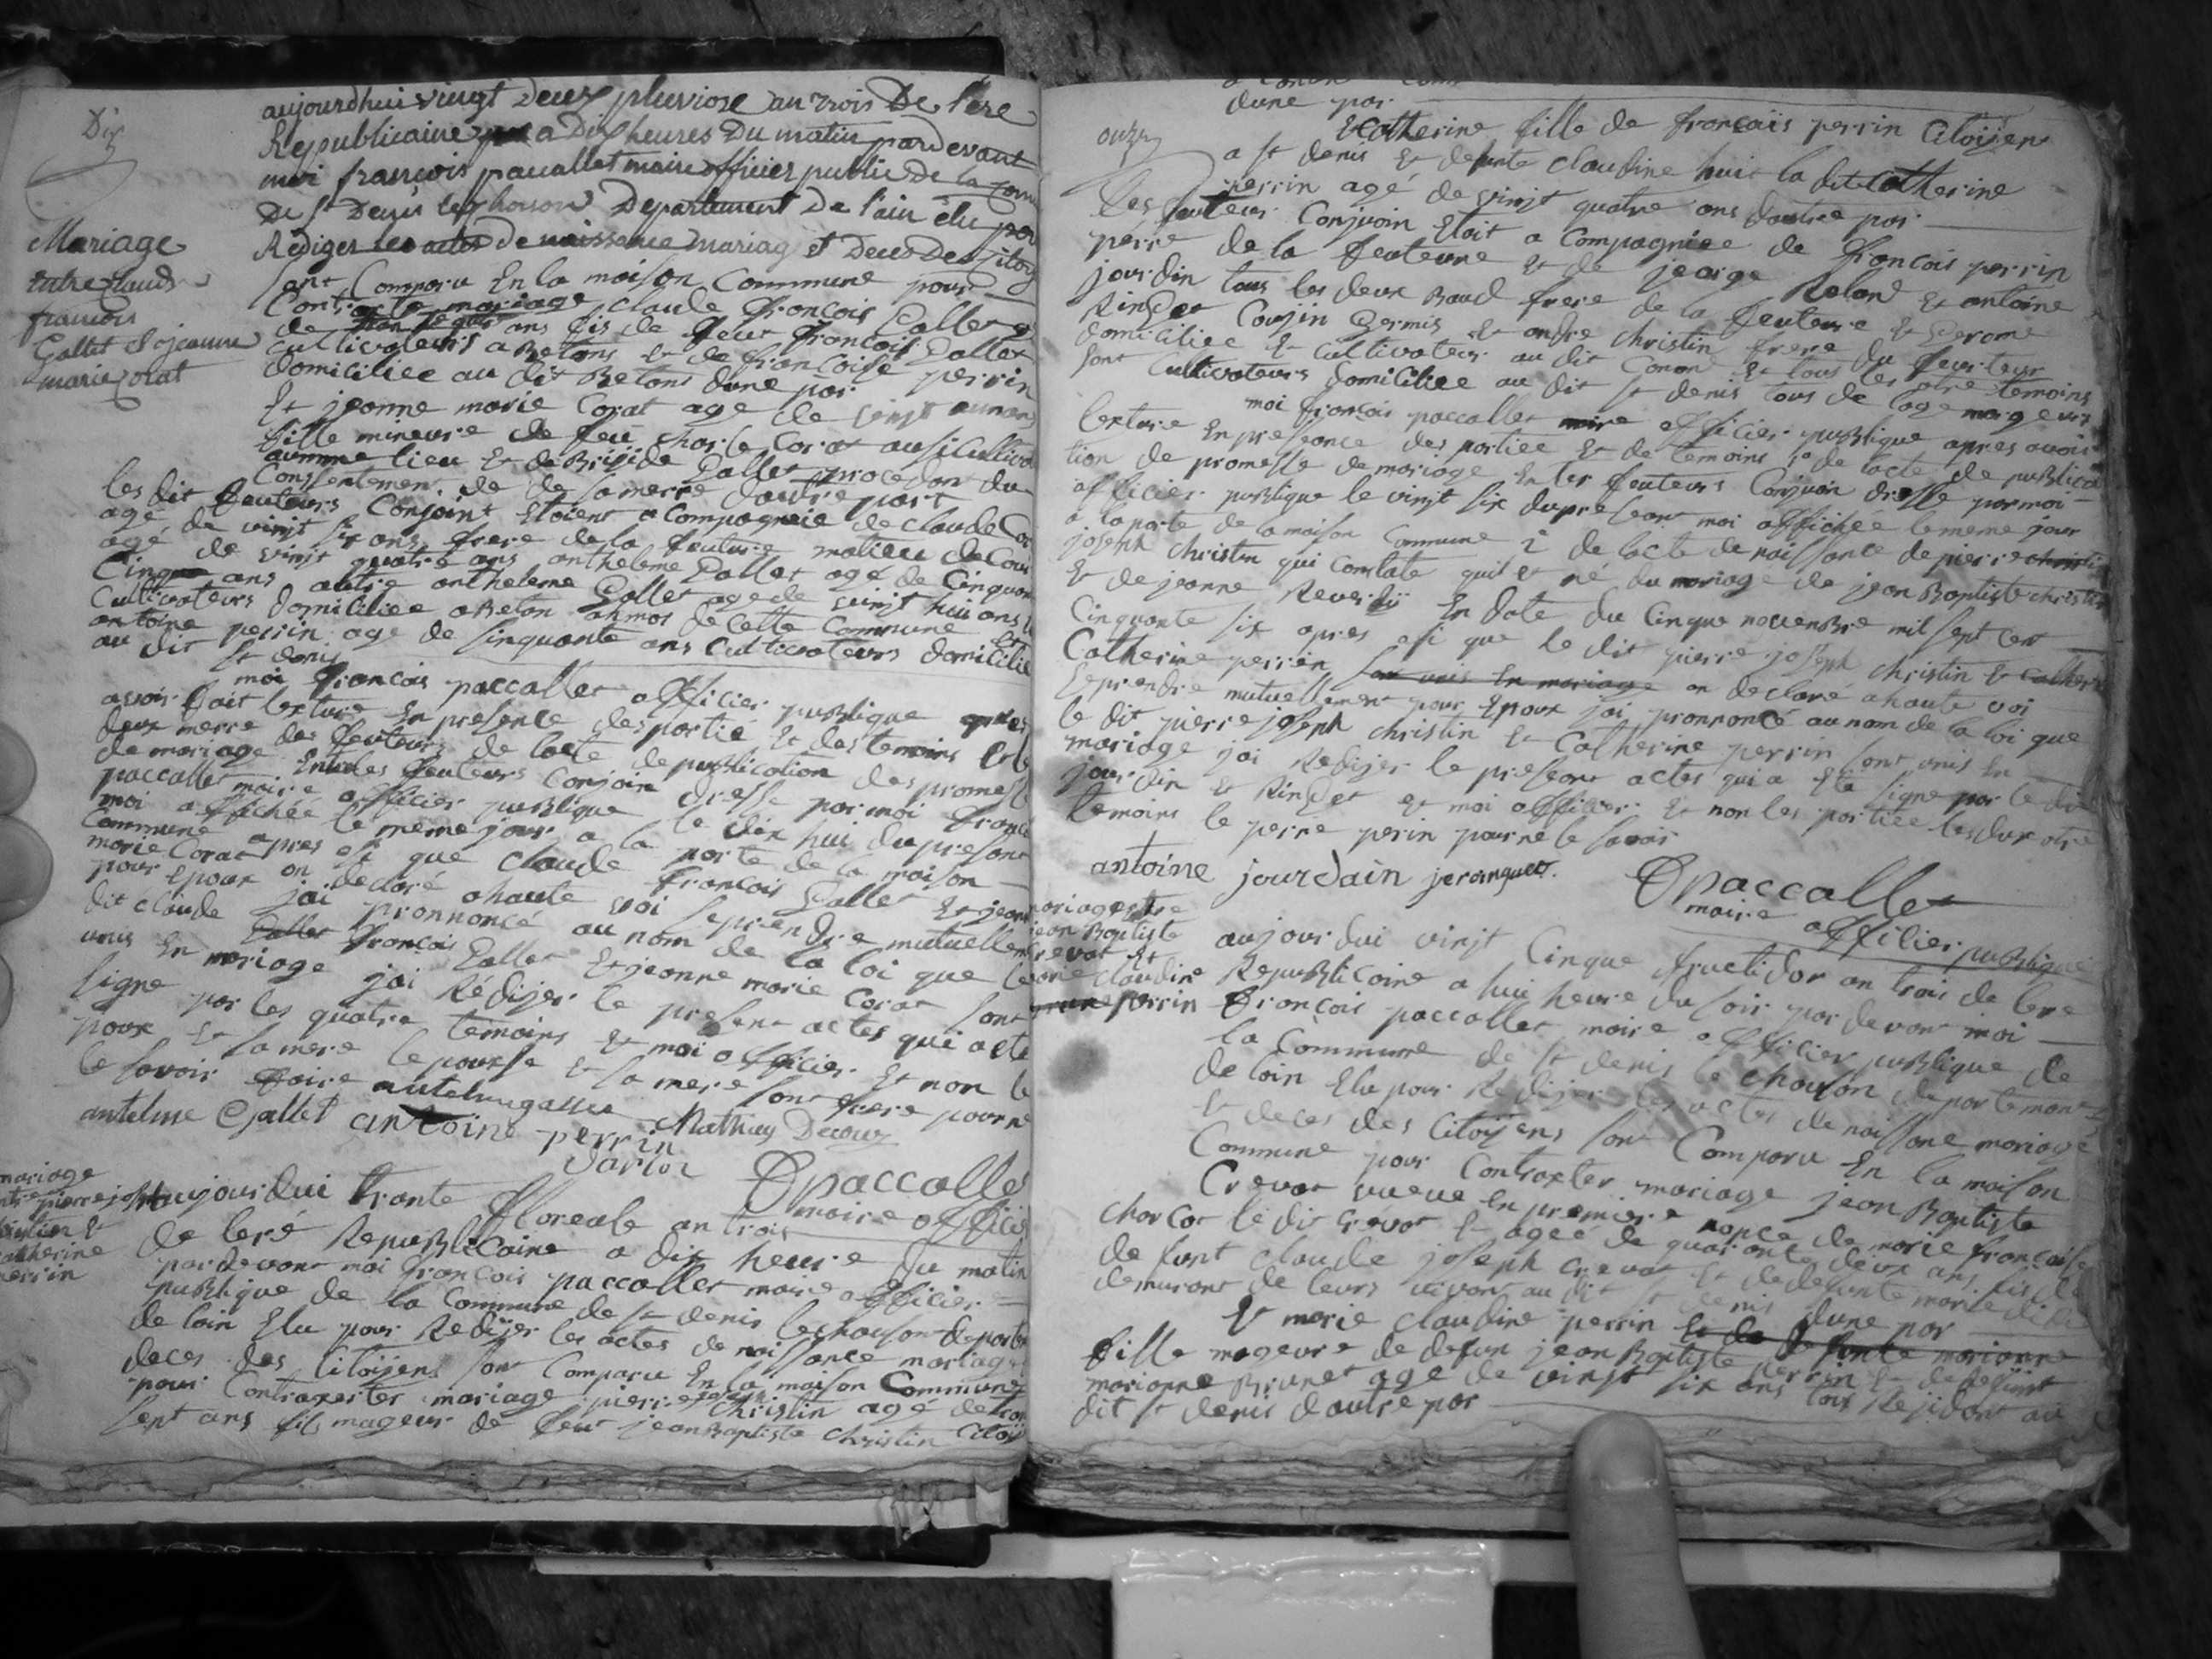 Dix
Mariage
entre Claude
francois
Gallet & jeanne
marie Corat
aujourdhui vingt Deux pluviose an trois De l'ere
Republicaine a Dix heures Du matin pardevant
moi francois paccallet maire officier public De la
De St Denis le chosson Departement De l'ain élu pour
Rediger les actes de naissance mariag et Deces Des
sont Comparu En la maison Commune pour
Contracte mariage claude francois Gallet
de ans fis de feut francois Gallet
cultivateurs a Betons et de francoise perrin
domiciliee au dit Betons dune par
Et jeanne marie Corat age de vinjt
fille mineure de feu charle Corat
lieu et de Gallet procedant du
Consentement de de sa merre dautre part
les dit feuteurs Conjoint Etoient a Compagneie de claude
agé de vinjt six ans frere de la feuture matieu
agé de vinjt quatre ans antheleme Gallet agé de Cinquan
Cinque ans autre antheleme Gallet age de vinjt hui ans
Cultivateurs domiciliee a Beton de Cette Commune et
antoine perrin age de sinquante ans Cultivateurs domicilie
au dit St denis
moi francois paccallet officier publique apres
avoir fait lexture En presence des portié et des temoins
deux merre des feuteurs de lacte de publication des promess
de mariage Entre les feuteurs Conjoin dresse par moi franc
paccallet maire officier publique le dix hui du presant
moi affichée le meme jour a la porte de la maison
Commune apres esi que claude francois Gallet Et jeann
marie Corat on declaré ahaute voi se prendre mutuellem
pour epoux jai pronnoncé au nom de la loi que le
dit claude francois Gallet Et jeanne marie Corat sont
unis En mariage jai Rédijer le presant actes qui a eté
signe par les quatre temoins Et moi officier Et non le
poux Et sa mere lepousse Et sa mere sont frere pour ne
le savoir faire
antelme Gallet antoine perrin Mathieu Decour
Dpaccallet
maire officie
mariage
Christin Et
catherine
perrin
aujourdui trante floreale an trois
de leré Republicaine a dix heure du matin
pardevant moi francois paccallet maire officier
publique de la Commune de St denis le chauson departe
de lain Elu pour Redijer les actes de naissance mariage
deces des Citoijens sont Comparu En la maison Commune
pour Contraxester mariage pierre joseph Christin agé de
sept ans fis mageur de feut jean Baptiste Christin Citoij
dune par
onze
Et Catherine fille de francois perrin Citoijen
a St denis Et defunte claudine huit la dite Catherine
perrin agé de vinjt quatre ans dautre par
Les feuteur Conjoin Etoit a Compagniee de francois perrin
pérre de la feuteure Et de jeorge Roland Et antoine
jourdin tous les deux Baud frere de la feuteure Et Gerome
Rindet Coujin Germis Et andre christin frere du feuteur
domiciliee Et Cultivateur au dit Et tous les otre temoins
sont Cultivateurs domiciliee au dit St denis tous de lage mageurs
moi francois paccallet maire officier publique apres avoir
lexture En preseance des portiee Et de temoins 1° de lacte de publica
tion de promesse de mariage Enter feuteurs Conjoin dresse par moi
officier publique le vinjt six du preseant moi affichée le meme jour
a la porte de la maison Commune 2° de lacte de naissance de pierre
joseph christin qui constate quil et né du mariage de jean Baptiste christin
Et de jeanne Reverdij En date du Cinque novenbre mil sept cent
Cinquante six apres esi que le dit pierre joseph christin Et cather
Catherine perrin sont unis En mariage on declaré a haute voi
se prendre mutuellement pour Epoux jai pronnoncé au nom de la loi que
le dit pierre joseph christin Et Catherine perrin sont unis En
mariage jai Redijer le preseant actes qui a Eté signe par le dit
jourdin Et Rindet et moi officier Et non les portiee les dux otre
temoins le perre perin pour ne le savoir
antoine jourdain
Dpaccallet
maire officier publique
mariage
jean Baptiste
Crevat Et
marie claudine
perrin
aujourdui vinjt Cinque fructidor an trois de lere
Republicaine a hui heure du soir pardevant moi
francois paccallet maire officier publique de
la Commune de St denis le chauson departemant
de lain Elu pour Redijer les actes de naissane mariage
Et deces des Citoijens sont Comparu En la maison
Commune pour Contraxter mariage jean Baptiste
Crevat En premiere nopce de marie francoise
charcot le dit crevat Et agee de quarante deux ans fis de
defunt claude joseph crevat Et de defunte marie
demurant de leurs vivant au dit St denis dune par
Et marie claudine perrin Et de defunte marianne
fille mageure de defun jean Baptiste perrin Et de defunt
marianne Brunet age de vinjt six ans tous Rejidant au
dit St denis dautre par